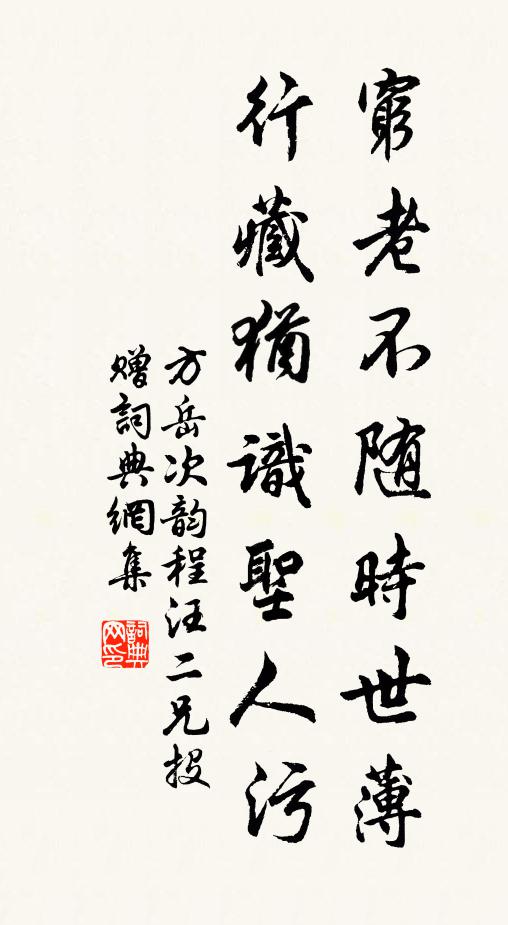 窮老不随時世薄
行藏猶識聖人污
方岳次韵程汪二兄投
赠詞典網集
詞典
网印